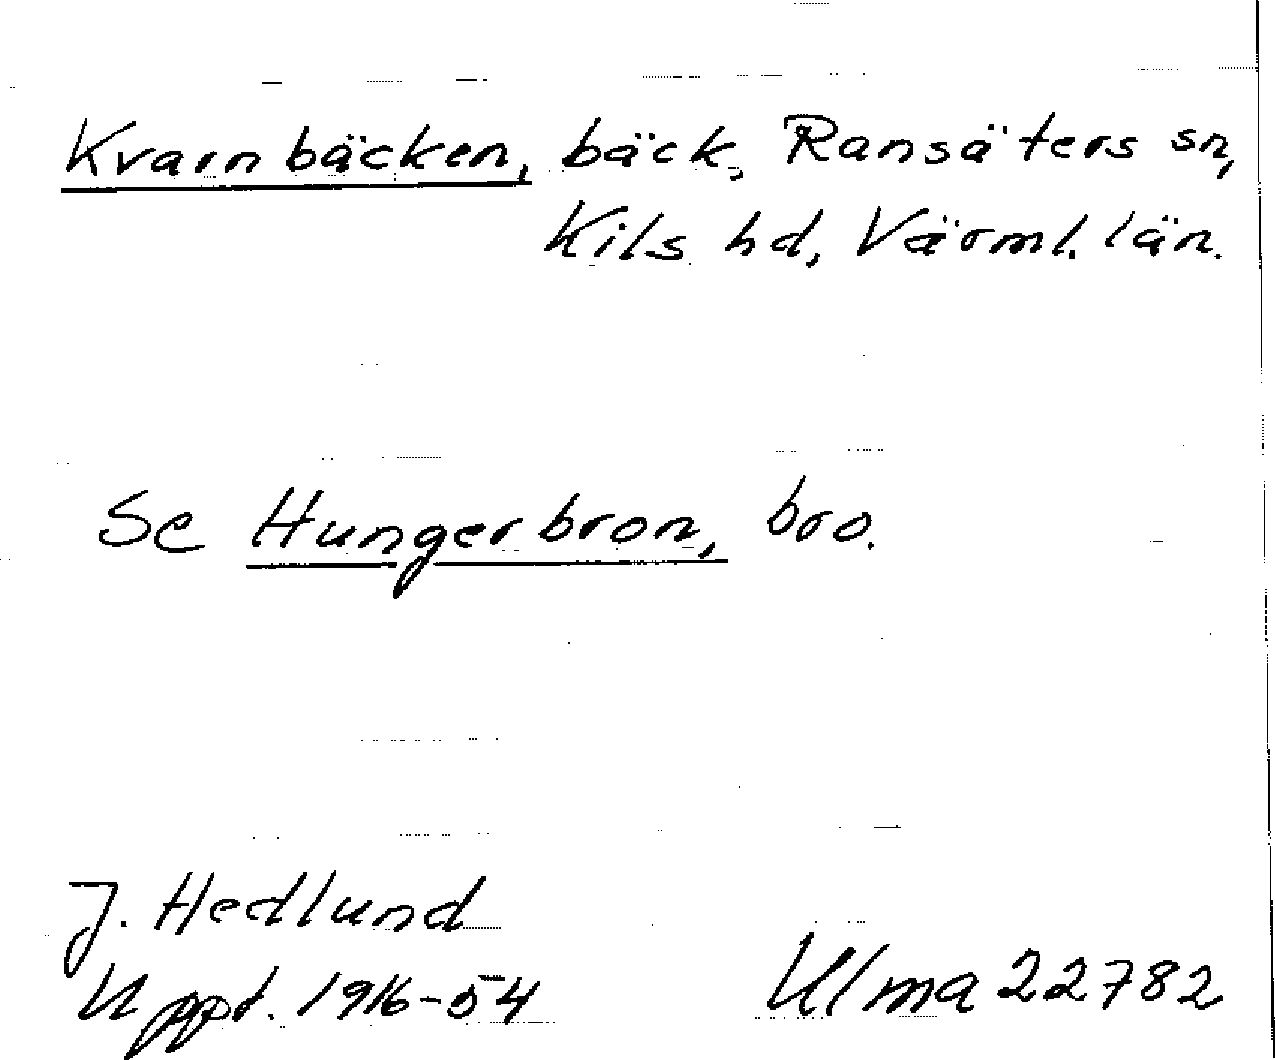 Kvarnbäcken, bäck, Ransäters sn,
Kils hd, Värml. län.
Se Hungerbron, bro.
J. Hedlund
Uppt. 1916-54
Ulma 22782